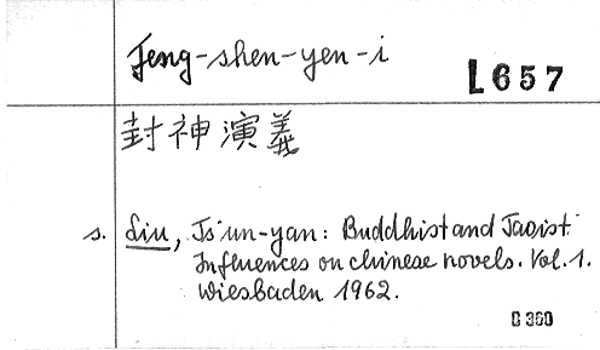 Feng-shen-yen-i
L657
封神演義
s. Liu, Ts'un-yan: Buddhist and Taoist
Influences on chinese novels. Vol. 1.
Wiesbaden 1962.
B 360